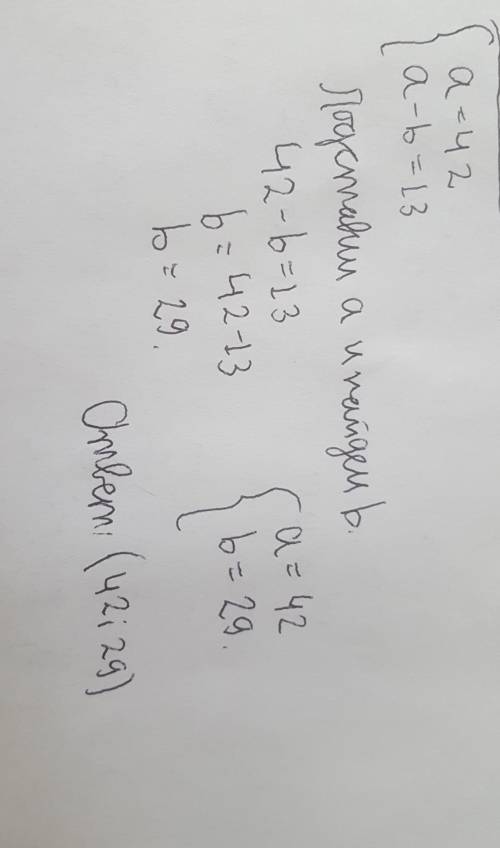 { a = 42
a - b = 13
Подставим a и найдем b.
42 - b = 13
b = 42 - 13
b = 29.
{ a = 42
b = 29.
Ответ: (42; 29)